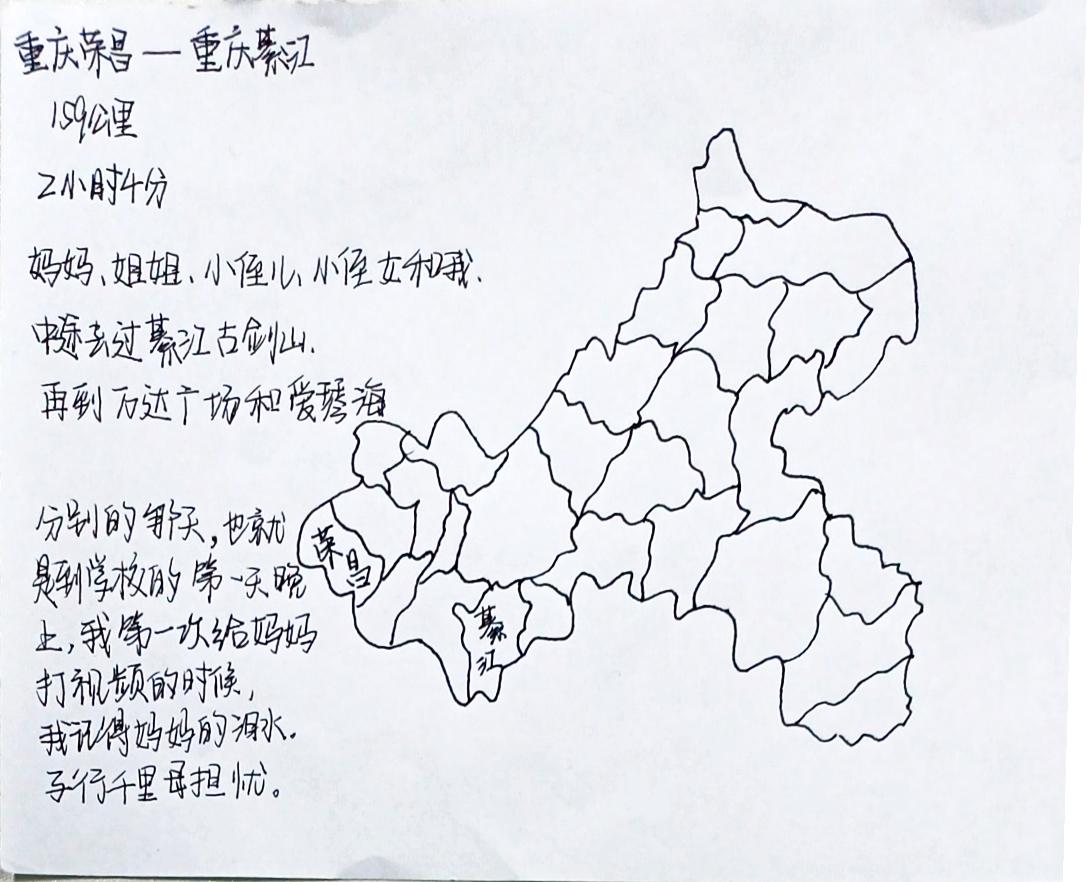 重庆荣昌—重庆綦江
159公里
2小时4分
妈妈、姐姐、小侄儿、小侄女和我.
中途去过綦江古剑山.
再到万达广场和爱琴海
分别的那天,也就
是到学校的第一天晚
上,我第一次给妈妈
打视频的时候,
我记得妈妈的泪水.
子行千里母担忧。
荣昌
綦江